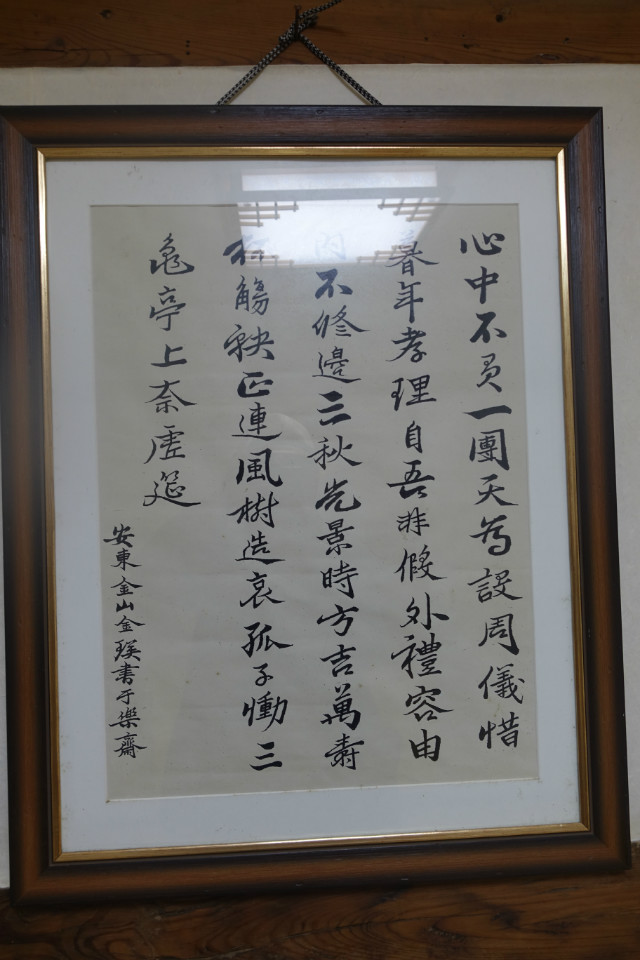 心中不負一團天為設周儀惜
暮年孝理自吾非假外禮容由
內不修邊三秋光景時方吉萬壽
行觴秩正連風樹造哀孤子慟三
龜亭上奈虛筵
安東金山金書于樂齋